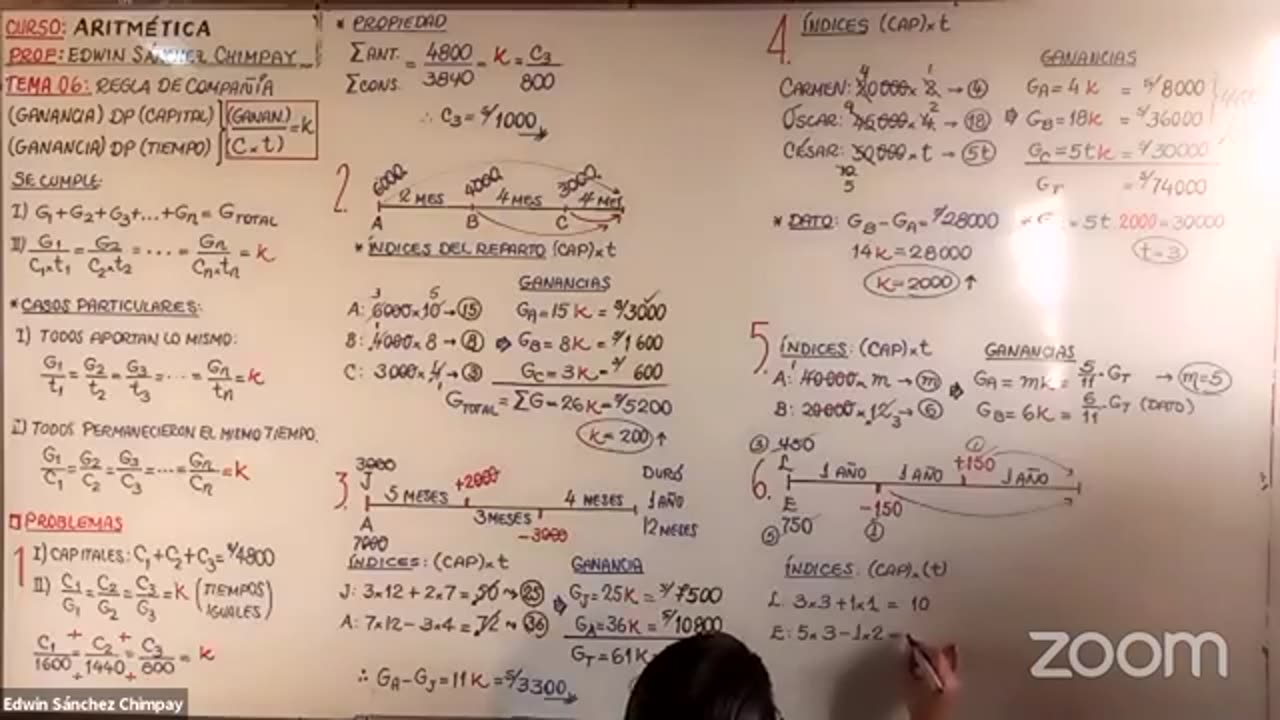 CURSO: ARITMÉTICA
PROF: EDWIN SÁNCHEZ CHIMPAY
TEMA 06: REGLA DE COMPAÑÍA
(GANANCIA) DP (CAPITAL)
(GANANCIA) DP (TIEMPO)
(GANAN.)/(C×t) = k
SE CUMPLE:
I) G₁+G₂+G₃+...+Gₙ = G TOTAL
II) G₁/C₁×t₁ = G₂/C₂×t₂ = .... = Gₙ/Cₙ×tₙ = k
* CASOS PARTICULARES:
I) TODOS APORTAN LO MISMO:
G₁/t₁ = G₂/t₂ = G₃/t₃ = .... = Gₙ/tₙ = k
II) TODOS PERMANECIERON EL MISMO TIEMPO.
G₁/C₁ = G₂/C₂ = G₃/C₃ = .... = Gₙ/Cₙ = k
PROBLEMAS
1 I) CAPITALES: C₁+C₂+C₃ = S/4800
II) C₁/G₁ = C₂/G₂ = C₃/G₃ = k (TIEMPOS IGUALES)
C₁/1600 + C₂/1440 + C₃/800 = k
* PROPIEDAD
ΣANT./ΣCONS. = 4800/3840 = k = C₃/800
∴ C₃ = S/1000
2. 6000 4000 3000
2 MES 4 MES 4 MES
A B C
* ÍNDICES DEL REPARTO (CAP)×t
GANANCIAS
A: 6000×10 → 15 G_A = 15k = S/3000
B: 4000×8 → 8 G_B = 8k = S/1600
C: 3000×4 → 3 G_C = 3k = S/ 600
G TOTAL = ΣG = 26k = S/5200
k = 200
3. 3000
J 5 MESES +2000 4 MESES
A 3 MESES -3000
7000
DURÓ
1 AÑO
12 MESES
ÍNDICES: (CAP)×t GANANCIA
J: 3×12 + 2×7 = 50 → 25 G_J = 25k = S/7500
A: 7×12 - 3×4 = 72 → 36 G_A = 36k = S/10800
G_T = 61k
∴ G_A - G_J = 11k = S/3300
4. ÍNDICES (CAP)×t
GANANCIAS
CARMEN: 20000× 8 → 4 G_A = 4k = S/8000
ÓSCAR: 45000×4 → 18 G_B = 18k = S/36000
CÉSAR: 50000×t → 5t G_C = 5tk = S/30000
10
5
G_T = S/74000
* DATO: G_B - G_A = S/28000
14k = 28000
k = 2000
= 5t.2000 = 30000
t = 3
5. ÍNDICES: (CAP)×t GANANCIAS
A: 40000×m → m G_A = mk = 5/11 . G_T → m = 5
B: 20000×12 → 6 G_B = 6k = 6/11 . G_T (DATO)
6. 3 450
L 1 AÑO 1 AÑO +150 1 AÑO
E -150
5 750 1
ÍNDICES: (CAP)×(t)
L: 3×3+1×1 = 10
E: 5×3-1×2 =
zoom
Edwin Sánchez Chimpay